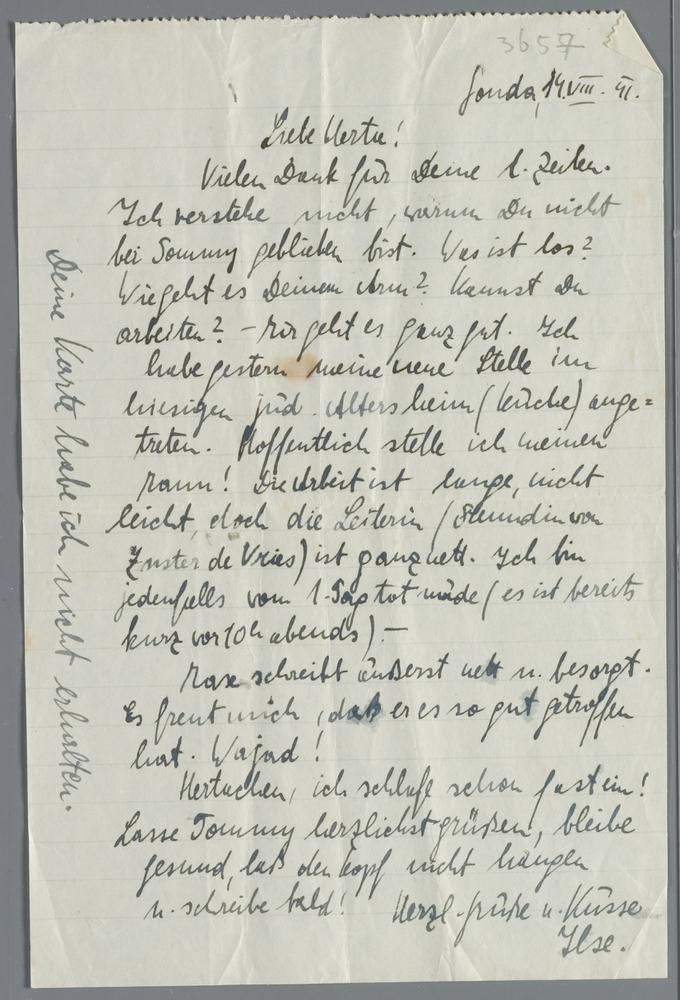 3657
Gouda, 14.VIII.41.
Liebe Herta!
Vielen Dank für Deine l. Zeilen.
Ich verstehe nicht, warum Du nicht
bei Tommy geblieben bist. Was ist los?
Wie geht es Deinem Arm? Kannst Du
arbeiten? – Mir geht es ganz gut. Ich
habe gestern meine neue Stelle im
hiesigen jüd. Altersheim (Küche) ange=
treten. Hoffentlich stelle ich meinen
Mann! Die Arbeit ist lange, nicht
leicht, doch die Leiterin (Freundin von
Zuster de Vries) ist ganz nett. Ich bin
jedenfalls vom 1. Tag tot müde (es ist bereits
kurz vor 10h abends). –
Max schreibt äußerst nett u. besorgt.
Es freut mich, daß er es so gut getroffen
hat. Wajad!
Hertachen, ich schlafe schon fast ein!
Lasse Tommy herzlichst grüßen, bleibe
gesund, laß den Kopf nicht hängen
u. schreibe bald! Herzl. Grüße u. Küsse
Ilse.
Deine Karte habe ich nicht erhalten.